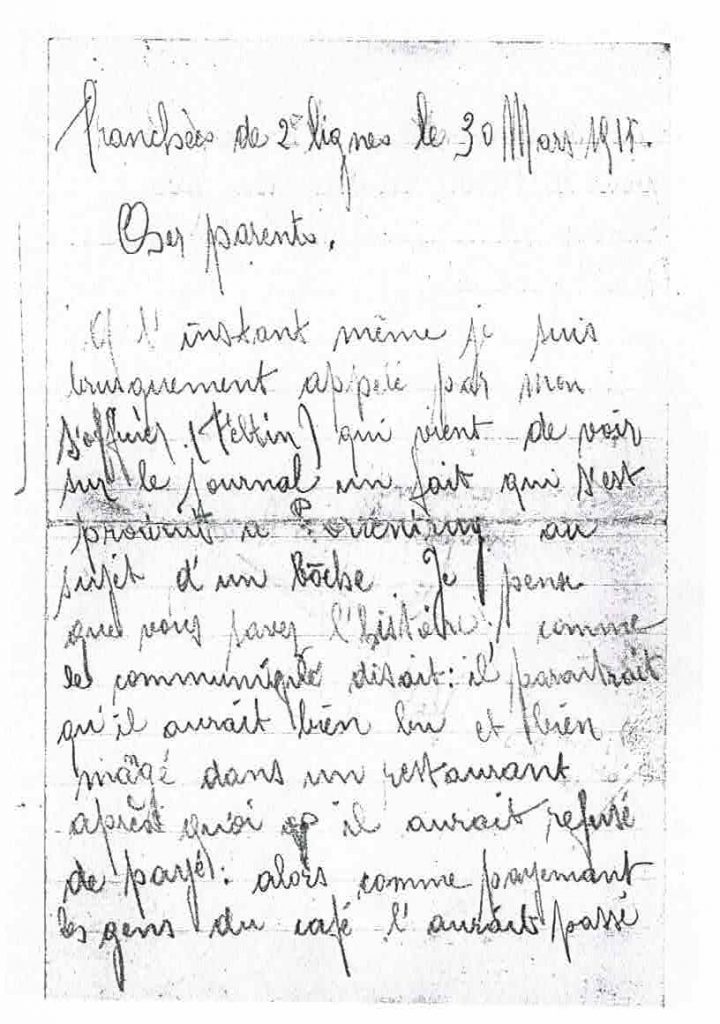 Tranchées de 2e lignes le 30 Mars 1915.
Cher parents.
A l'instant même je suis
brusquement appelé par mon
s'officier (Veltin) qui vient de voir
sur le journal un fait qui s'est
produit a au
sujet d'un bôche. Je pense
que vous savez l'histoire; comme
le communiqué disait: il paraîtrait
qu'il aurait bien bu et bien
mãgé dans un restaurant
après quoi il aurait refusé
de payé: alors comme payemant
les gens du café l'aurait passé